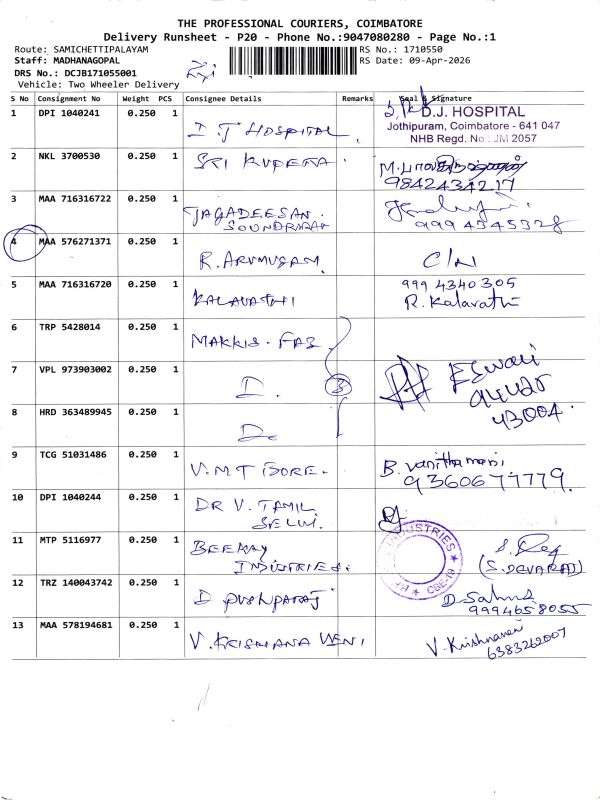 THE PROFESSIONAL COURIERS, COIMBATORE
Delivery Runsheet - P20 - Phone No.:9047080280 - Page No.:1
Route: SAMICHETTIPALAYAM
RS No.: 1710550
Staff: MADHANAGOPAL
RS Date: 09-Apr-2026
DRS No.: DCJB171055001
Vehicle: Two Wheeler Delivery
S No Consignment No Weight PCS Consignee Details Remarks Seal & Signature
1 DPI 1040241 0.250 1 D J HOSPITAL
D.J. HOSPITAL
Jothipuram, Coimbatore - 641 047
NHB Regd. No : JM 2057
2 NKL 3700530 0.250 1 SRI KUPERA
9842434217
3 MAA 716316722 0.250 1 JAGADEESAN.
SOUNDRRAN
9994345328
4 MAA 576271371 0.250 1 R. ARUMUGAM C/N
5 MAA 716316720 0.250 1 KALAVATHI 999 4340305
R. Kalavathi
6 TRP 5428014 0.250 1 MAKKIS. FAB
7 VPL 973903002 0.250 1 D. 3 Eswari
8 HRD 363489945 0.250 1 D. 43004.
9 TCG 51031486 0.250 1 V.M.T BORE. B. Vanithamani
9360677779.
10 DPI 1040244 0.250 1 DR V. TAMIL
SELVI.
11 MTP 5116977 0.250 1 BEEKAY
INDUSTRIES.
INDUSTRIES
CBE-19
(S. DEVARAJ)
12 TRZ 140043742 0.250 1 D PUSHPARAJ D.
9994658055
13 MAA 578194681 0.250 1 V. KRISHANA VENI V. Krishnaveni
6383262007